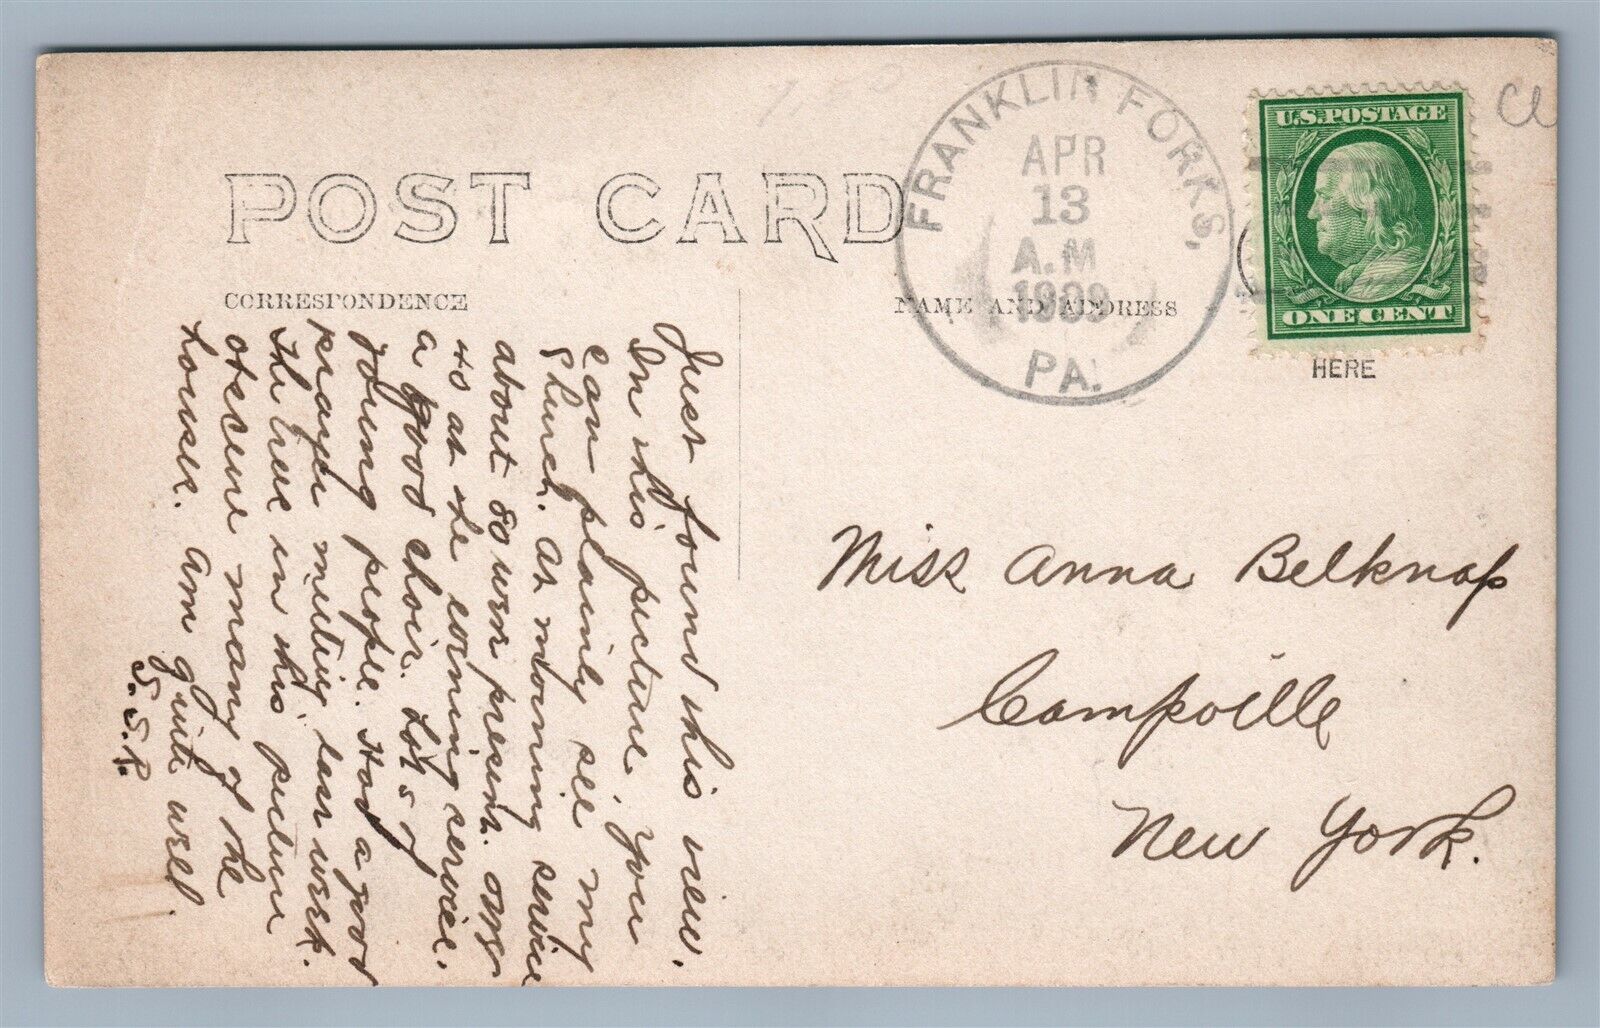 POST CARD
CORRESPONDENCE
NAME AND ADDRESS
FRANKLIN FORKS,
APR
13
A.M
1909
PA.
U.S.POSTAGE
ONE CENT
HERE
Just found this view.
In this picture. You
can plainly see my
Church. At morning service
about 80 were present.
to at the evening service.
a good choir. Lots of
young people. Had a good
prayer meeting last week.
The tree in this picture
obscure many of the
houses. Am quite well.
S.S.R.
Miss Anna Belknap
Campville
New York.